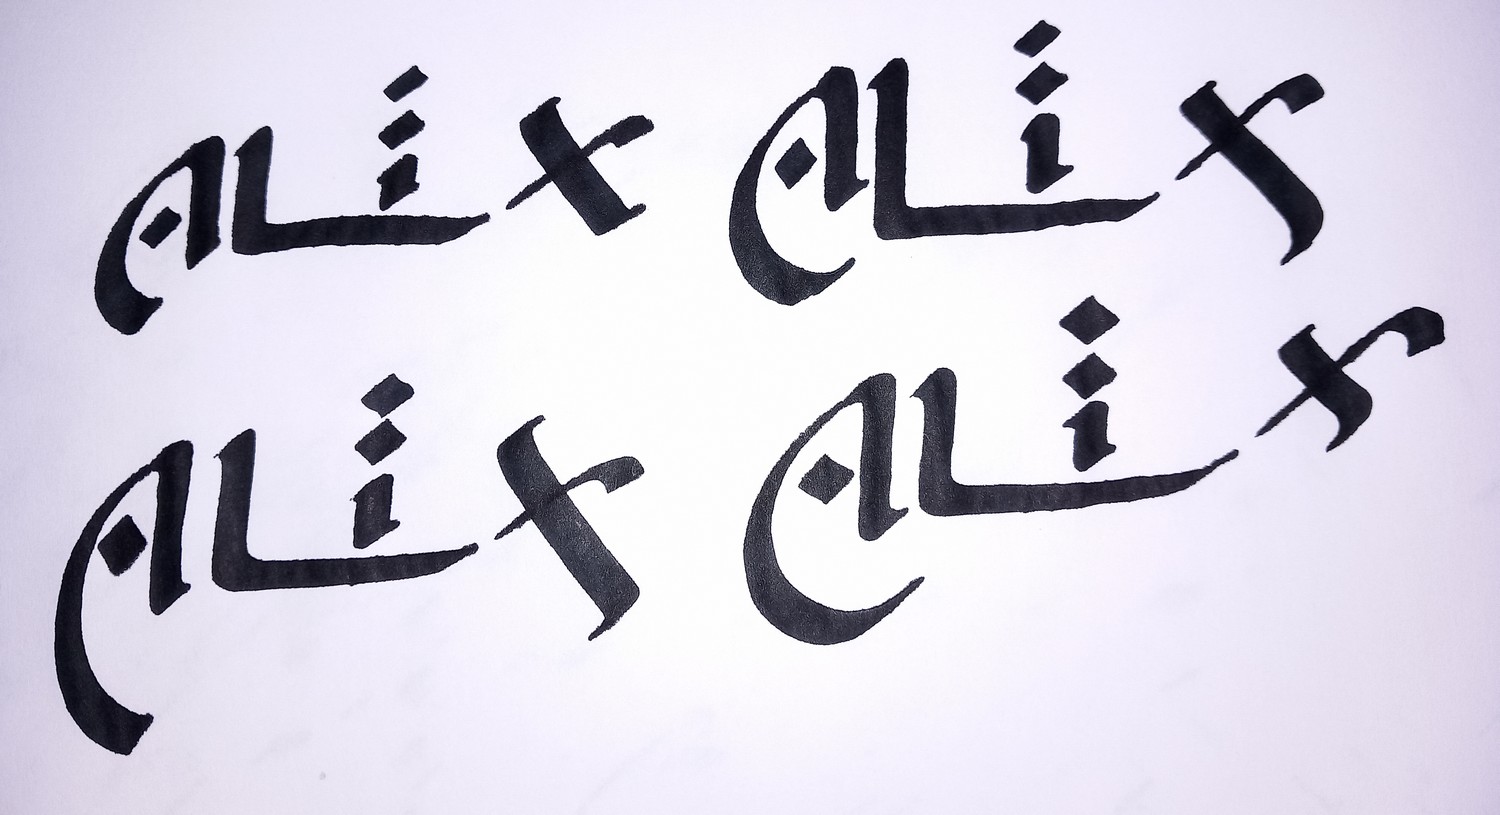 Alix Alix
Alix Alix